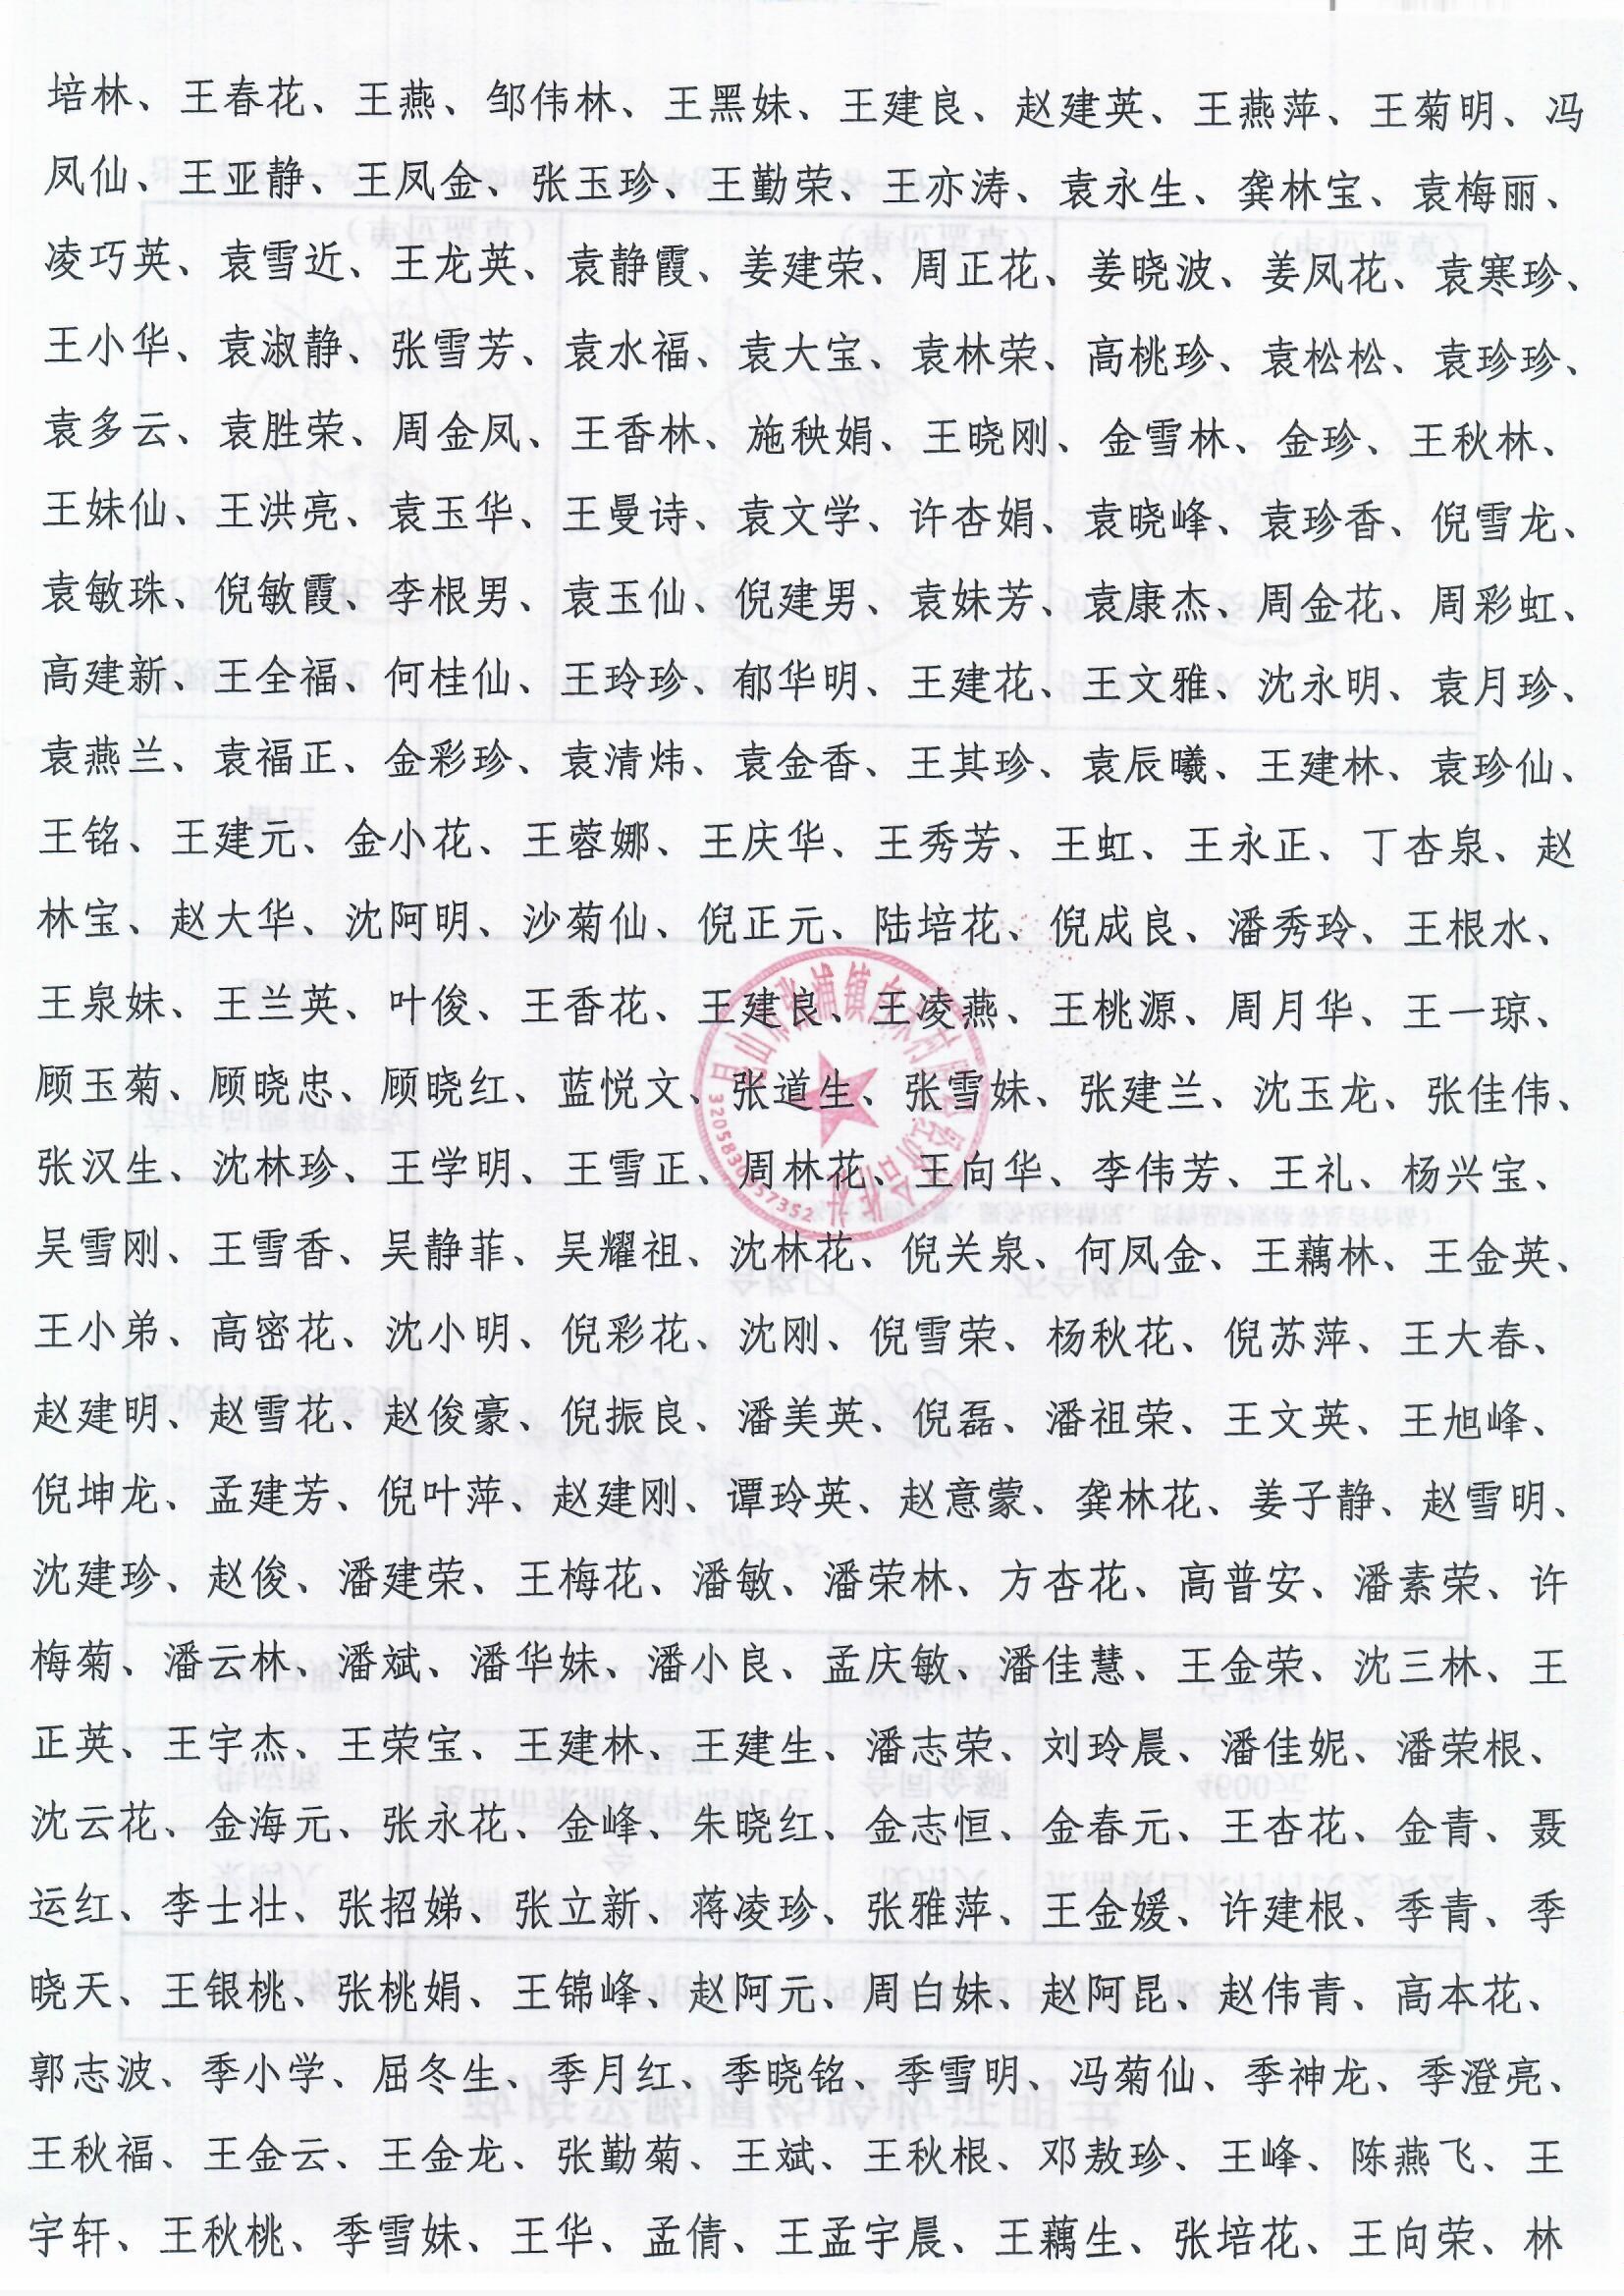 培林、王春花、王燕、邹伟林、王黑妹、王建良、赵建英、王燕萍、王菊明、冯
凤仙、王亚静、王凤金、张玉珍、王勤荣、王亦涛、袁永生、龚林宝、袁梅丽、
凌巧英、袁雪近、王龙英、袁静霞、姜建荣、周正花、姜晓波、姜凤花、袁寒珍、
王小华、袁淑静、张雪芳、袁水福、袁大宝、袁林荣、高桃珍、袁松松、袁珍珍、
袁多云、袁胜荣、周金凤、王香林、施秧娟、王晓刚、金雪林、金珍、王秋林、
王妹仙、王洪亮、袁玉华、王曼诗、袁文学、许杏娟、袁晓峰、袁珍香、倪雪龙、
袁敏珠、倪敏霞、李根男、袁玉仙、倪建男、袁妹芳、袁康杰、周金花、周彩虹、
高建新、王全福、何桂仙、王玲珍、郁华明、王建花、王文雅、沈永明、袁月珍、
袁燕兰、袁福正、金彩珍、袁清炜、袁金香、王其珍、袁辰曦、王建林、袁珍仙、
王铭、王建元、金小花、王蓉娜、王庆华、王秀芳、王虹、王永正、丁杏泉、赵
林宝、赵大华、沈阿明、沙菊仙、倪正元、陆培花、倪成良、潘秀玲、王根水、
王泉妹、王兰英、叶俊、王香花、王建良、王凌燕、王桃源、周月华、王一琼、
顾玉菊、顾晓忠、顾晓红、蓝悦文、张道生、张雪妹、张建兰、沈玉龙、张佳伟、
张汉生、沈林珍、王学明、王雪正、周林花、王向华、李伟芳、王礼、杨兴宝、
吴雪刚、王雪香、吴静菲、吴耀祖、沈林花、倪关泉、何凤金、王藕林、王金英、
王小弟、高密花、沈小明、倪彩花、沈刚、倪雪荣、杨秋花、倪苏萍、王大春、
赵建明、赵雪花、赵俊豪、倪振良、潘美英、倪磊、潘祖荣、王文英、王旭峰、
倪坤龙、孟建芳、倪叶萍、赵建刚、谭玲英、赵意蒙、龚林花、姜子静、赵雪明、
沈建珍、赵俊、潘建荣、王梅花、潘敏、潘荣林、方杏花、高普安、潘素荣、许
梅菊、潘云林、潘斌、潘华妹、潘小良、孟庆敏、潘佳慧、王金荣、沈三林、王
正英、王宇杰、王荣宝、王建林、王建生、潘志荣、刘玲晨、潘佳妮、潘荣根、
沈云花、金海元、张永花、金峰、朱晓红、金志恒、金春元、王杏花、金青、聂
运红、李士壮、张招娣、张立新、蒋凌珍、张雅萍、王金媛、许建根、季青、季
晓天、王银桃、张桃娟、王锦峰、赵阿元、周白妹、赵阿昆、赵伟青、高本花、
郭志波、季小学、屈冬生、季月红、季晓铭、季雪明、冯菊仙、季神龙、季澄亮、
王秋福、王金云、王金龙、张勤菊、王斌、王秋根、邓敖珍、王峰、陈燕飞、王
宇轩、王秋桃、季雪妹、王华、孟倩、王孟宇晨、王藕生、张培花、王向荣、林